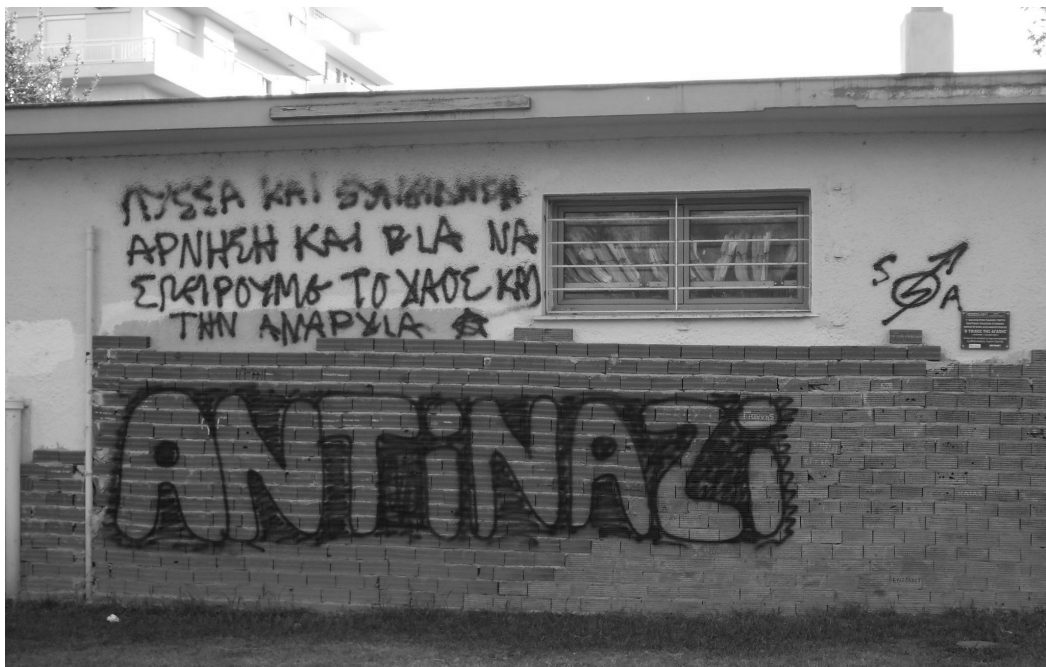 ΛΥΣΣΑ ΚΑΙ ΣΥΝΕΙΔΗΣΗ
ΑΡΝΗΣΗ ΚΑΙ ΒΙΑ ΝΑ
ΣΠΕΙΡΟΥΜΕ ΤΟ ΧΑΟΣ ΚΑΙ
ΤΗΝ ΑΝΑΡΧΙΑ
S A
ANTiNAZi